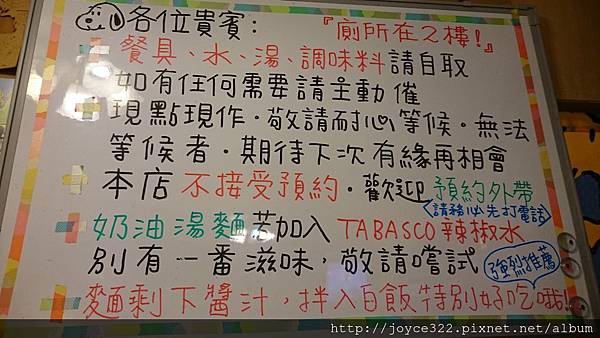 各位貴賓：『廁所在2樓!』
餐具、水、湯、調味料請自取
如有任何需要請主動 催
現點現作．敬請耐心等候．無法
等候者．期待下次有緣再相會
本店 不接受預約．歡迎 預約外帶
〈請務必先打電話〉
奶油湯麵若加入 TABASCO辣椒水
別有一番滋味，敬請嚐試
強烈推薦
麵剩下醬汁，拌入白飯特別好吃哦!
http://joyce322.pixnet.net/album